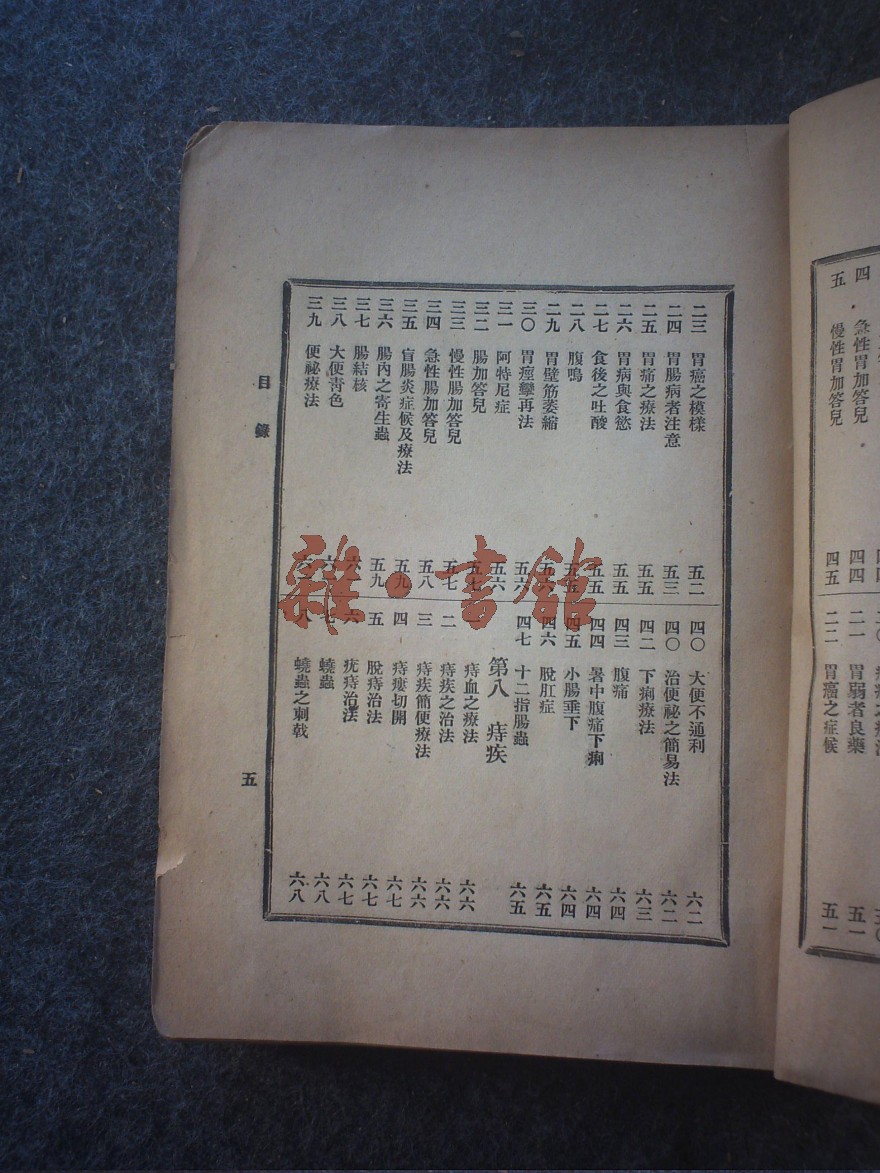 四 急性胃加答兒 四四
五 慢性胃加答兒 四五
二一 胃弱者良藥 五一
二二 胃癌之症候 五一
二三 胃癌之模樣 五二
二四 胃腸病者注意 五三
二五 胃痛之療法 五五
二六 胃病與食慾 五五
二七 食後之吐酸 五五
二八 腹鳴 五五
二九 胃壁筋萎縮 五六
三〇 胃痙攣再法 五六
三一 阿特尼症 五六
三二 腸加答兒 五七
三三 慢性腸加答兒 五七
三四 急性腸加答兒 五八
三五 盲腸炎症候及療法 五九
三六 腸內之寄生蟲 五九
三七 腸結核
三八 大便青色
三九 便祕療法
四〇 大便不通利 六二
四〇 治便祕之簡易法 六二
四二 下痢療法 六三
四三 腹痛 六四
四四 暑中腹痛下痢 六四
四五 小腸垂下 六四
四六 脫肛症 六五
四七 十二指腸蟲 六五
第八 痔疾
痔血之療法 六六
二 痔疾之治法 六六
三 痔疾簡便療法 六六
四 痔瘻切開 六七
五 脫痔治法 六七
六 疣痔治法 六七
七 蟯蟲 六八
八 蟯蟲之刺戟 六八
目錄
五
雜·書館